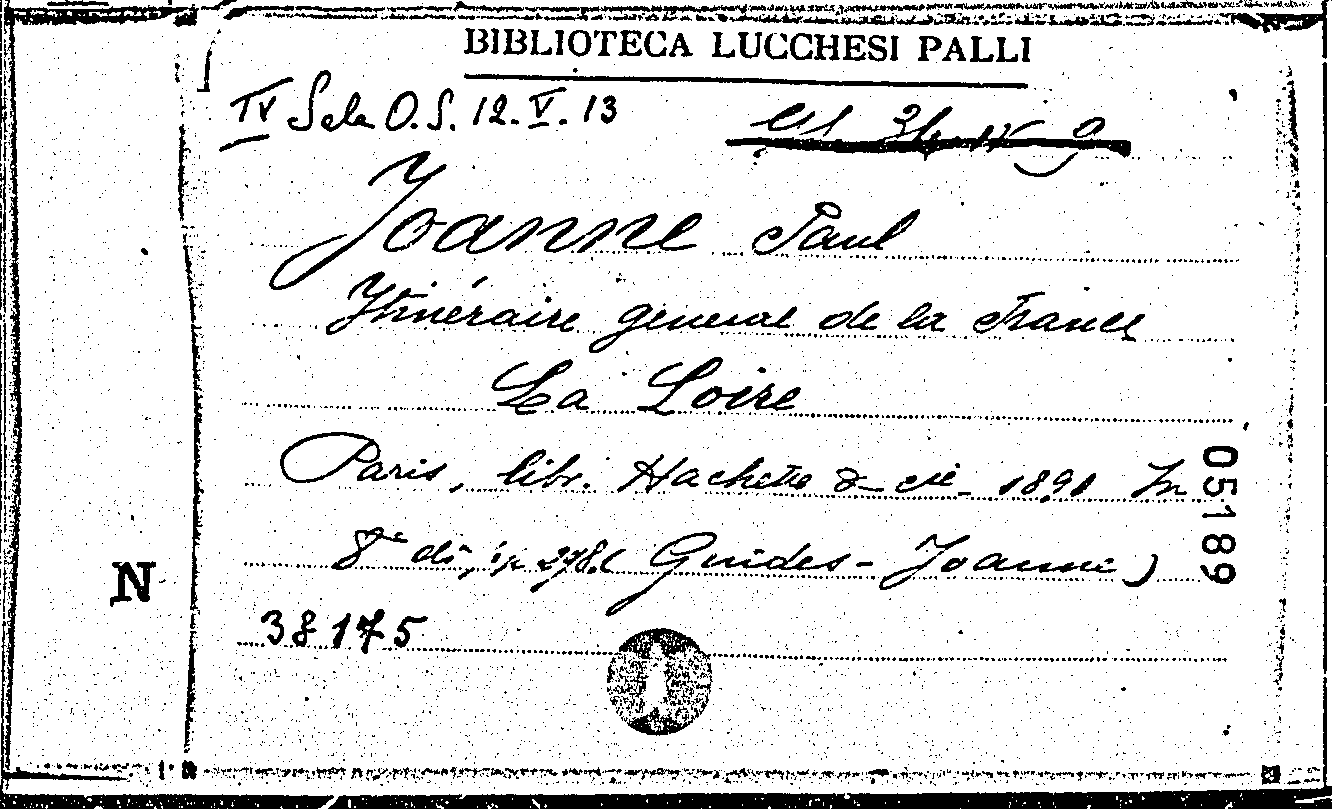 BIBLIOTECA LUCCHESI PALLI
IV Sala O.S. 12. V. 13
Joanne Paul
Itinéraire general de la France
La Loire
Paris, libr. Hachette & cie 1891 In
8° p. 278. (Guides-Joanne)
38175
05189
N